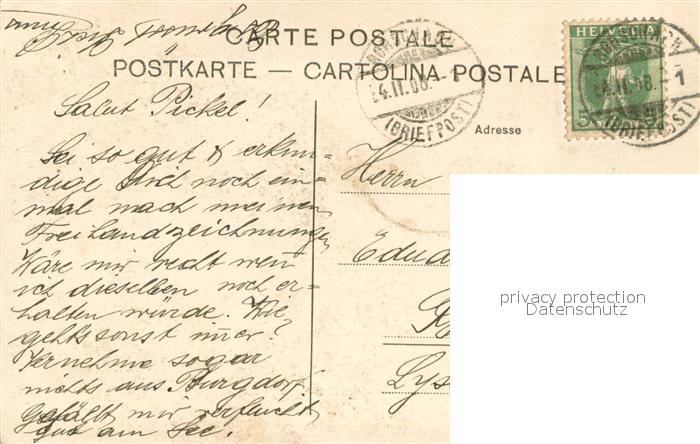 CARTE POSTALE
POSTKARTE — CARTOLINA POSTALE
HELVETIA
14.II.08.
(BRIEFPOST)
1
(BRIEFPOST)
Adresse
Salut Pickel!
Sei so gut & erkun=
dige dich noch ein=
mal nach meinen
Freihandzeichnungen
Wäre mir recht wenn
ich dieselben noch er=
halten würde. Wie
geht's sonst immer?
Vernehme sogar
nichts aus Burgdorf
Gefällt mir verflucht
gut am See.
Herrn
Edua
Lys
privacy protection
Datenschutz